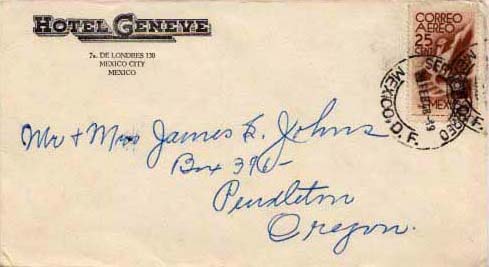 HOTEL GENEVE
7a. DE LONDRES 130
MEXICO CITY
MEXICO
CORREO
AEREO
25
MEXICO
MEXICO, D. F.
Mr + Mrs James L. Johns
Box 396-
Pendleton
Oregon.